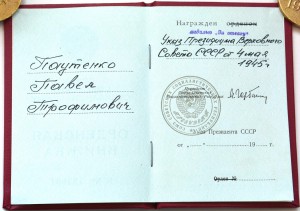 Паутенко
Павел
Трофимович
Награжден орденом
медалью „За отвагу"
Указ Президиума Верховного
Совета СССР от 4 мая
1945г.
Указ Президента СССР
от „ " 19 г.
Орден №